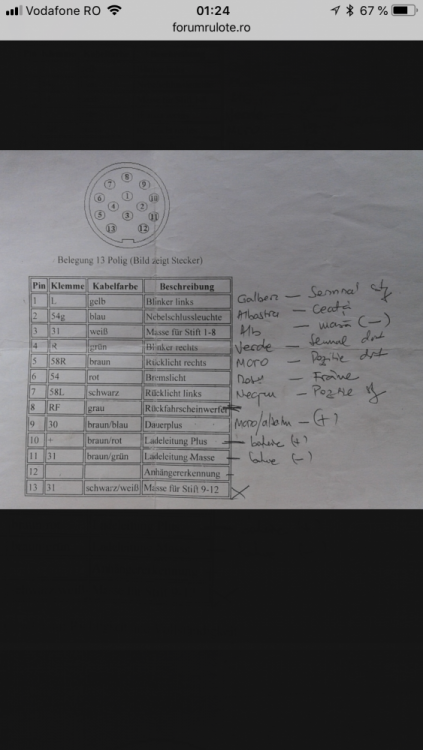 Vodafone RO 01:24 67 %
forumrulote.ro
8
7 9
6 1 10
4 2
5 3 11
13 12
Belegung 13 Polig (Bild zeigt Stecker)
Pin Klemme Kabelfarbe Beschreibung
1 L gelb Blinker links Galben — Semnal
2 54g blau Nebelschlussleuchte Albastru — Ceață
3 31 weiß Masse für Stift 1-8 Alb — masă (—)
4 R grün Blinker rechts Verde — Semnal
5 58R braun Rücklicht rechts Maro — Pozitie
6 54 rot Bremslicht — Frâne
7 58L schwarz Rücklicht links Negru — Pozitie
8 RF grau Rückfahrscheinwerfer
9 30 braun/blau Dauerplus Maro/albastru — (+)
10 + braun/rot Ladeleitung Plus — baterie (+)
11 31 braun/grün Ladeleitung Masse — (—)
12 Anhängererkennung —
13 31 schwarz/weiß Masse für Stift 9-12 X